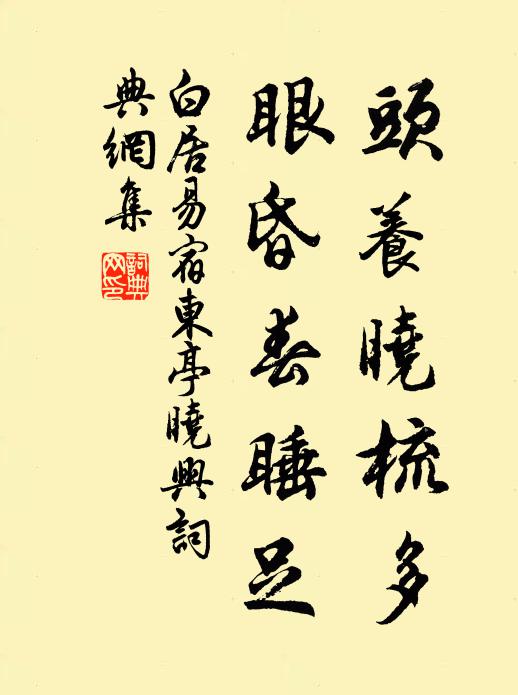 頭養曉梳多
眼昏春睡足
白居易宿東亭曉興詞
典網集
詞典
网印